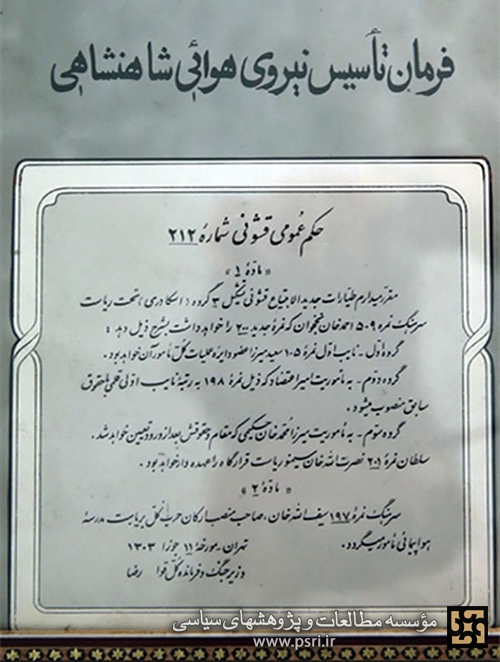 فرمان تأسیس نیروی هوائی شاهنشاهی
حکم عمومی قشونی شمارهٔ ۲۱۲
« مادهٔ ۱ »
مقرر میدارم طیارات جدید الابتیاع قشونی تشکیل ۳ گروه (اسکادری) تحت ریاست
سرهنگ نمره ۵۰۹ احمدخان نخجوان که نمرهٔ جدید ۲۰۰ را خواهد داشت بشرح ذیل دهد :
گروه اول - نایب اول نمرهٔ ۱۰۵ سعید میرزا عضو دایره عملیات کل مأمور آن خواهد بود .
گروه دوم - به مأموریت امیر اعتضاد که ذیل نمرهٔ ۱۹۸ به رتبهٔ نایب اولی قلمی با حقوق
سابق منصوب میشود .
گروه سوم - به مأموریت میرزا محمد خان حکیمی که مقام و حقوقش بعد از ورود تعیین خواهد شد .
سلطان نمرهٔ ۲۰۱ نصرت الله خان سیمینو ریاست قرارگاه را عهده دار خواهد بود .
« مادهٔ ۲ »
سرهنگ نمرهٔ ۱۹۷ سیف الله خان ، صاحب منصب ارکان حرب کل بریاست مدرسهٔ
هواپیمائی مأمور میگردد .
تهران - مورخهٔ ۱۱ جوزا ۱۳۰۳
وزیر جنگ و فرمانده کل قوا رضا
مؤسسه مطالعات و پژوهشهای سیاسی
www.psri.ir